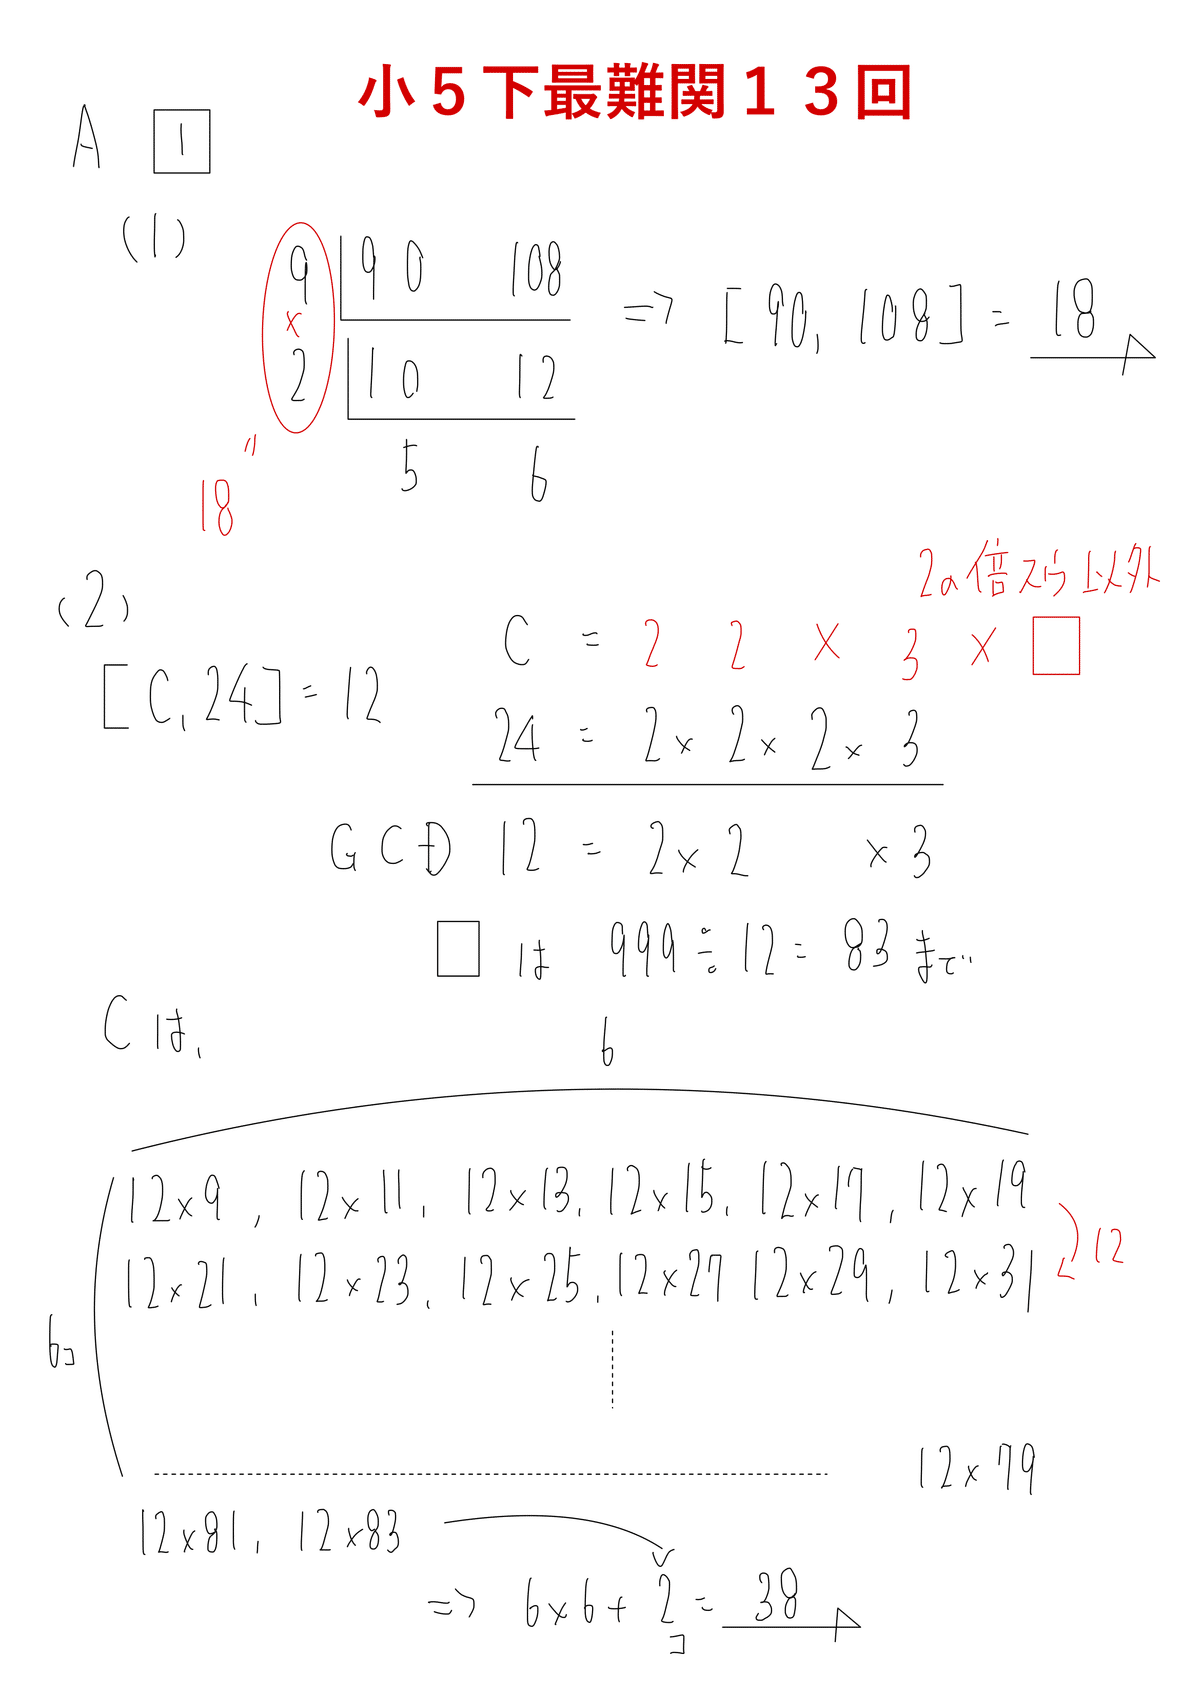 小５下最難関１３回
A 1
(1)
9 90 108
×
2 10 12
5 6
"
18
⇒ [90, 108] = 18
(2)
[C, 24] = 12
2の倍スウ以外
C = 2 2 × 3 × □
24 = 2 × 2 × 2 × 3
GCD 12 = 2 × 2 × 3
□ は 999 ÷ 12 = 83 まで
Cは、
6
12×9, 12×11, 12×13, 12×15, 12×17, 12×19
12
12×21, 12×23, 12×25, 12×27 12×29, 12×31
6コ
12×79
12×81, 12×83
⇒ 6×6+2=38
コ